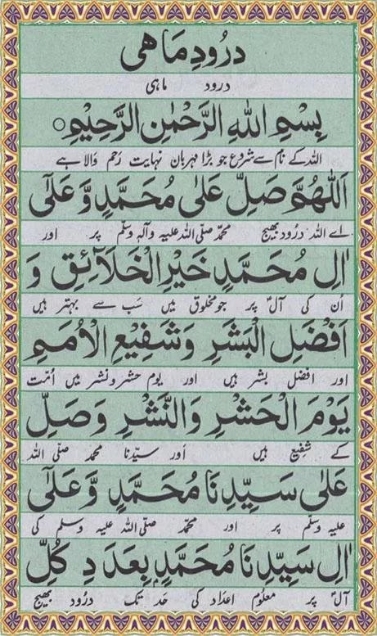 درود ماهی
درود ماہی
بِسْمِ اللهِ الرَّحْمٰنِ الرَّحِيْمِ ○
اللہ کے نام سے شروع جو بڑا مہربان نہایت رحم والا ہے
اَللّٰهُمَّ صَلِّ عَلٰى مُحَمَّدٍ وَّعَلٰٓى
اے اللہ درود بھیج محمد صلی اللہ علیہ وآلہ وسلم پر اور
اٰلِ مُحَمَّدٍ خَيْرِ الْخَلَآئِقِ وَ
اُن کی آل پر جو مخلوق میں سب سے بہتر ہیں
اَفْضَلِ الْبَشَرِ وَشَفِيْعِ الْاُمَمِ
اور افضل بشر ہیں اور یوم حشر و نشر میں اُمت
يَوْمَ الْحَشْرِ وَالنَّشْرِ وَصَلِّ
کے شفیع ہیں اور سیّدنا محمد صلی اللہ
عَلٰى سَيِّدِنَا مُحَمَّدٍ وَّعَلٰٓى
علیہ وسلم پر اور محمد صلی اللہ علیہ وسلم کی
اٰلِ سَيِّدِنَا مُحَمَّدٍ بِعَدَدِ كُلِّ
آل پر معلوم اعداد کی حد تک درود بھیج